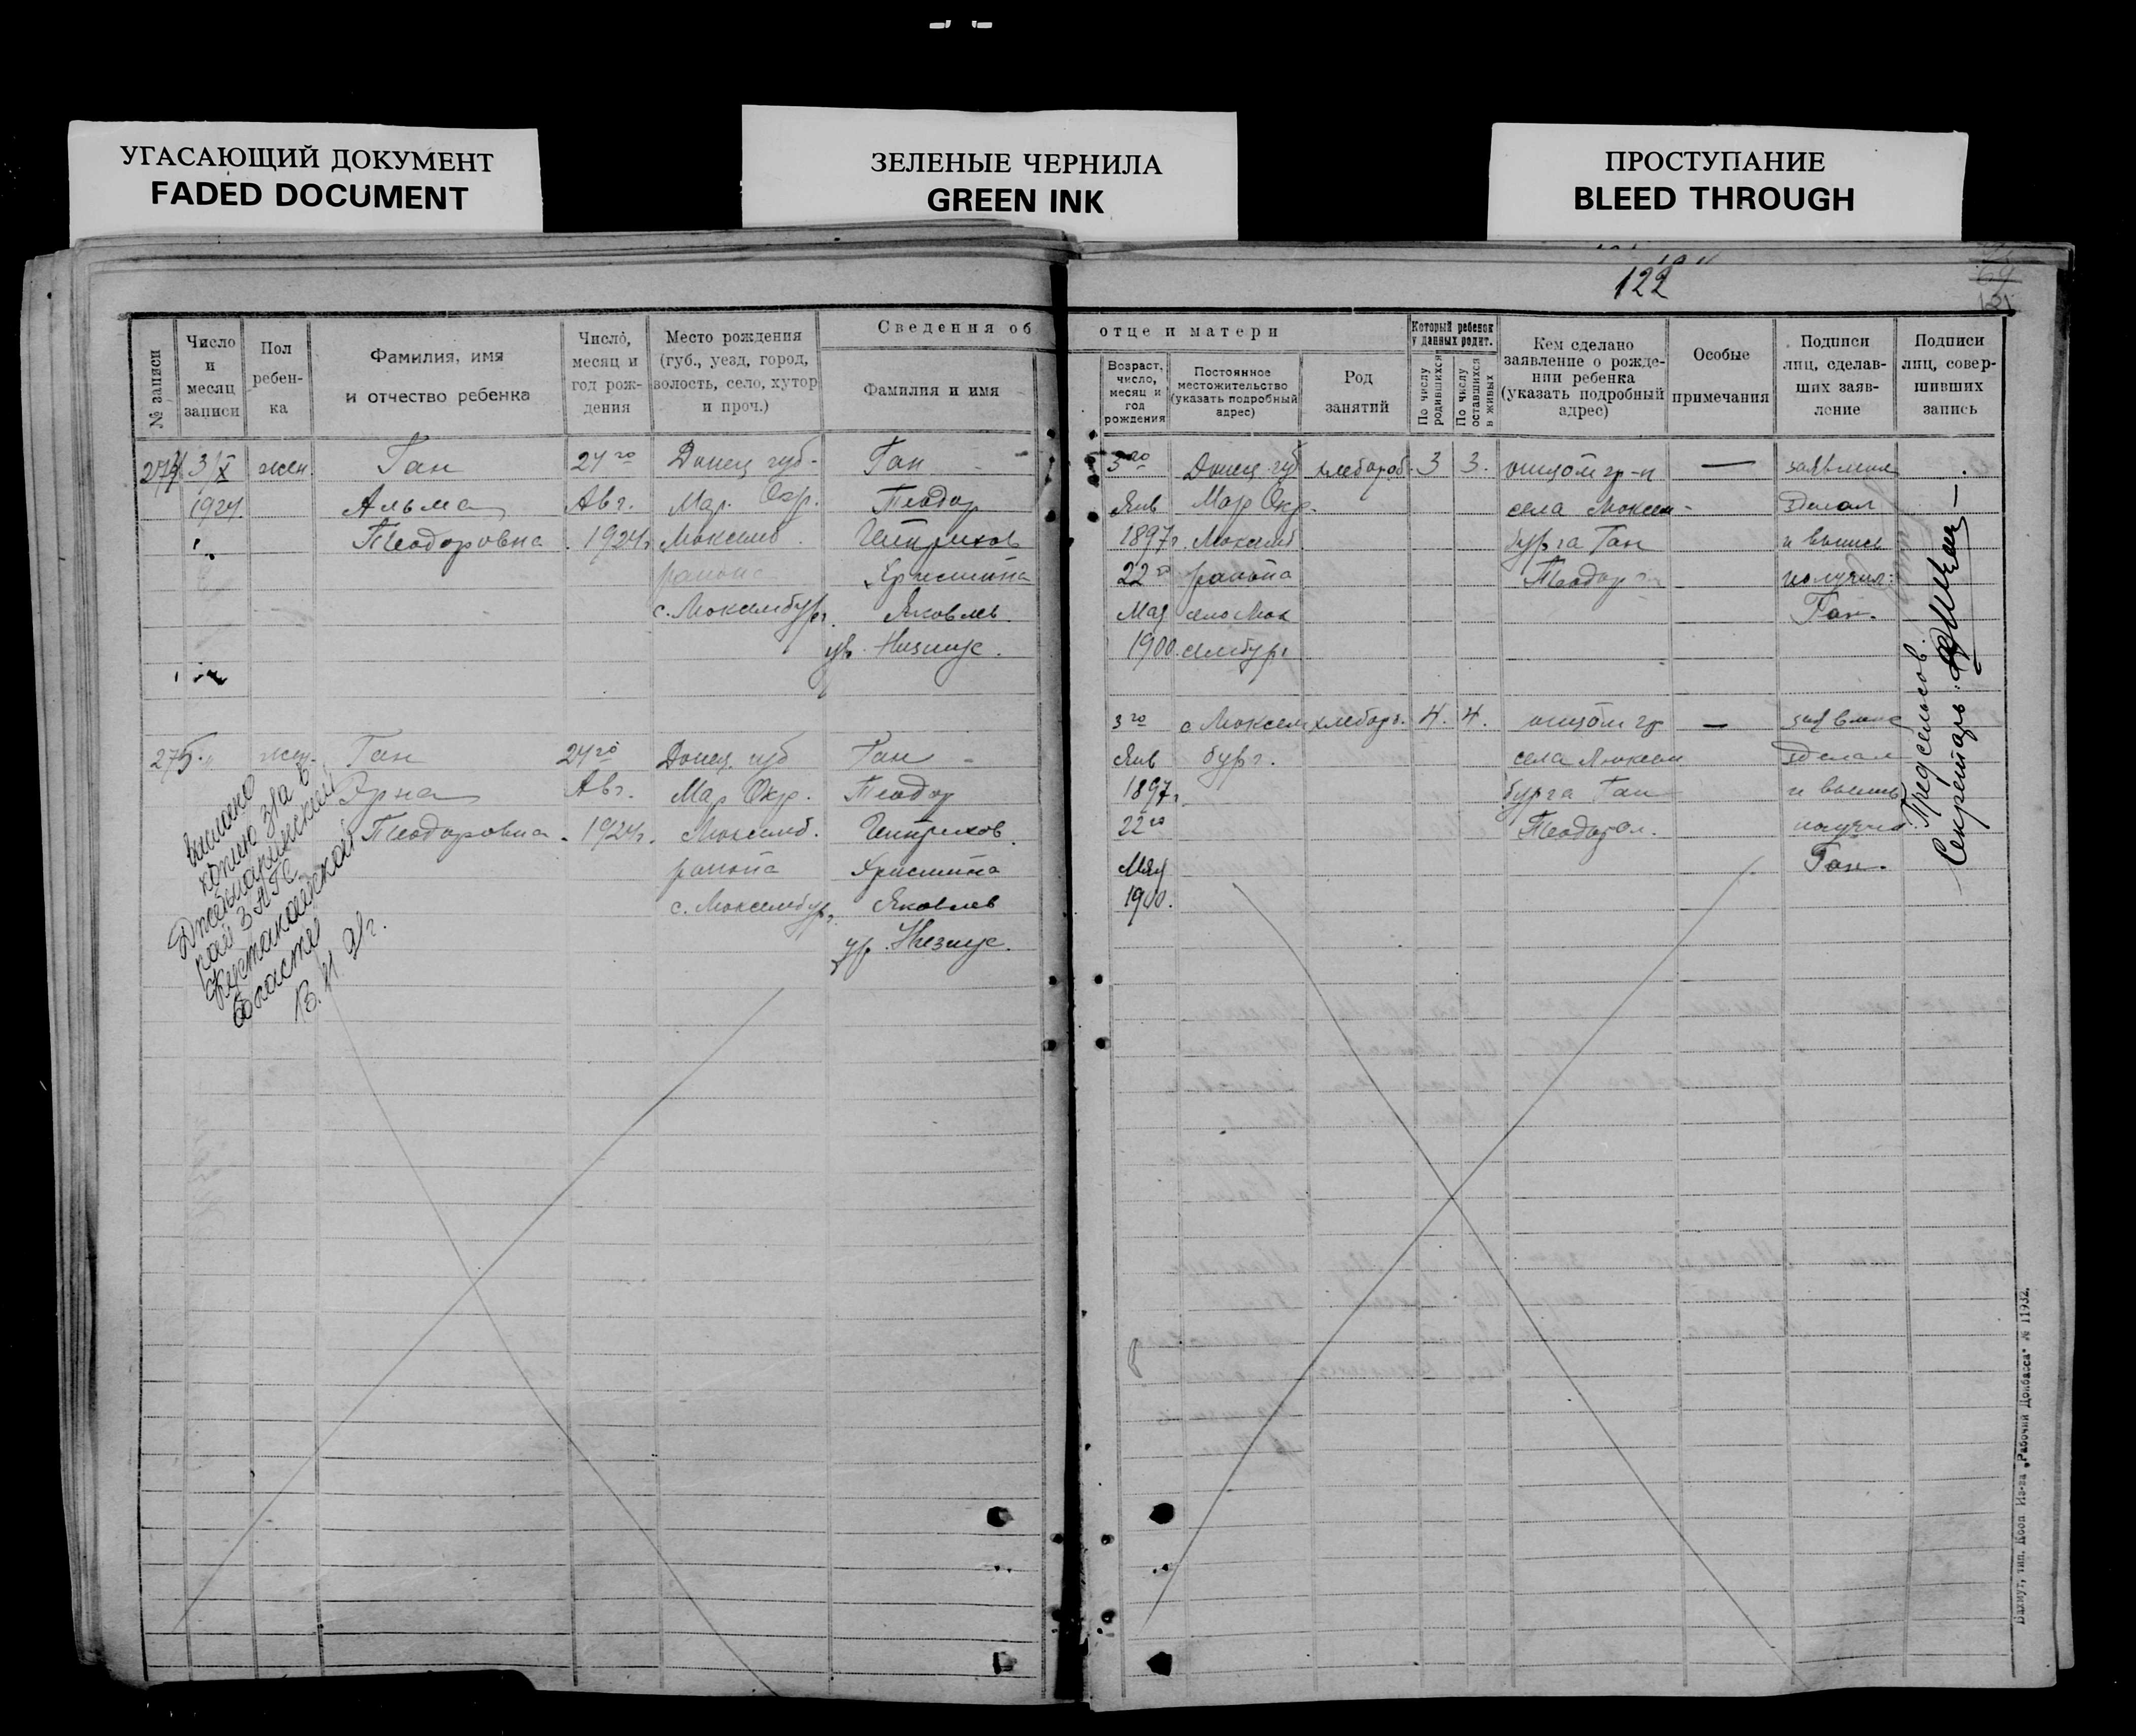 УГАСАЮЩИЙ ДОКУМЕНТ
FADED DOCUMENT
ЗЕЛЕНЫЕ ЧЕРНИЛА
GREEN INK
ПРОСТУПАНИЕ
BLEED THROUGH
122
№ записи
Число
и
месяц
записи
Пол
ребен-
ка
Фамилия, имя
и отчество ребенка
Число,
месяц и
год рож-
дения
Место рождения
(губ., уезд, город,
волость, село, хутор
и проч.)
Сведения об
Фамилия и имя
отце и матери
Возраст,
число,
месяц и
год
рождения
Постоянное
местожительство
(указать подробный
адрес)
Род
занятий
Который ребенок
у данных родит.
По числу
родившихся
По числу
оставшихся
в живых
Кем сделано
заявление о рожде-
нии ребенка
(указать подробный
адрес)
Особые
примечания
Подписи
лиц, сделав-
ших заяв-
ление
Подписи
лиц, совер-
шивших
запись
274 3/X жен. Ган 24го Донец губ. Ган
1924 Альма Авг. Мар. Окр. Теодор
Теодоровна 1924г. Люксемб. Генрихов
района Христина
с. Люксембург. Яковлев.
ур.
3го Донец. губ хлебороб. 3 3. отцом гр-н — заявление
Янв Мар Окр. села Люксем- зделал
1897г. Люксемб бурга Ган и выпись
22го района Теодор получил:
Мая село Люк Ган.
1900. сембург
275 жен. Ган 24го Донец. губ Ган
Эрна Авг. Мар Окр. Теодор
Теодоровна. 1924г. Люксемб. Генрихов.
района Христина
с. Люксембург. Яковлев
ур.
3го с Люксем хлебор. 4. 4. отцом гр —
Янв бург. села Люксем зделал
1897г. бурга Ган и выпись
22го Теодором. получил.
Мая Ган.
1900.
Предсельсов.
Секретарь
выслано
копию з/а в
рай ЗАГС
области
Бахмут, тип. Кооп. Из-ва „Рабочий Донбасса“ № 11932.